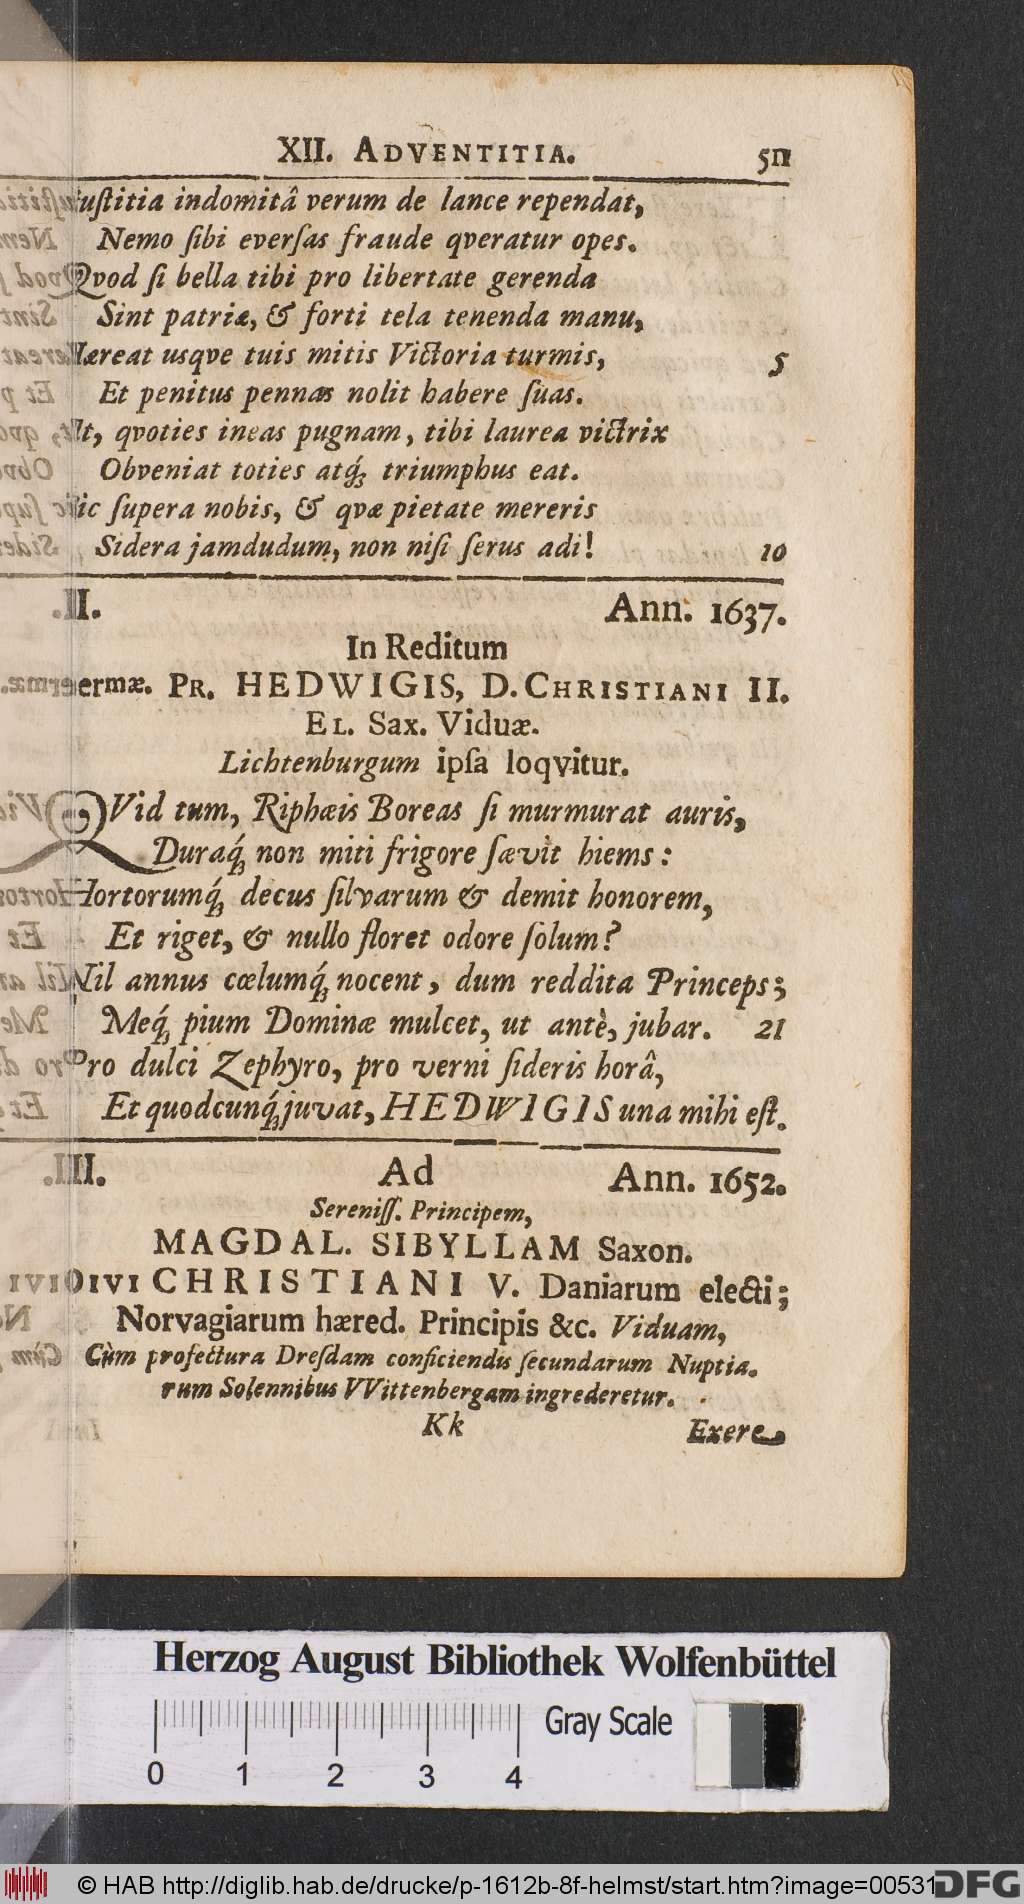 XII. ADVENTITIA. 511
Iuſtitia indomitâ verum de lance rependat,
Nemo ſibi everſas fraude qveratur opes.
Qvod ſi bella tibi pro libertate gerenda
Sint patriæ, & forti tela tenenda manu,
Hæreat usqve tuis mitis Victoria turmis, 5
Et penitus pennas nolit habere ſuas.
At, qvoties ineas pugnam, tibi laurea victrix
Obveniat toties atq́; triumphus eat.
Sic ſupera nobis, & qvæ pietate mereris
Sidera jamdudum, non niſi ſerus adi! 10
II. Ann. 1637.
In Reditum
ermæ. PR. HEDWIGIS, D. CHRISTIANI II.
EL. Sax. Viduæ.
Lichtenburgum ipſa loqvitur.
QVid tum, Riphæis Boreas ſi murmurat auris,
Duraq́; non miti frigore ſævit hiems:
Hortorumq́; decus ſilvarum & demit honorem,
Et riget, & nullo floret odore ſolum?
Nil annus cœlumq́; nocent, dum reddita Princeps;
Meq́; pium Dominæ mulcet, ut antè, jubar. 21
Pro dulci Zephyro, pro verni ſideris horâ,
Et quodcunq́; juvat, HEDWIGIS una mihi eſt.
III. Ad Ann. 1652.
Sereniſſ. Principem,
MAGDAL. SIBYLLAM Saxon.
DIVI CHRISTIANI V. Daniarum electi;
Norvagiarum hæred. Principis &c. Viduam,
Cùm profectura Dreſdam conficiendis ſecundarum Nuptia-
rum Solennibus VVittenbergam ingrederetur.
Kk Exere
Herzog August Bibliothek Wolfenbüttel
0 1 2 3 4 Gray Scale
© HAB http://diglib.hab.de/drucke/p-1612b-8f-helmst/start.htm?image=00531 DFG